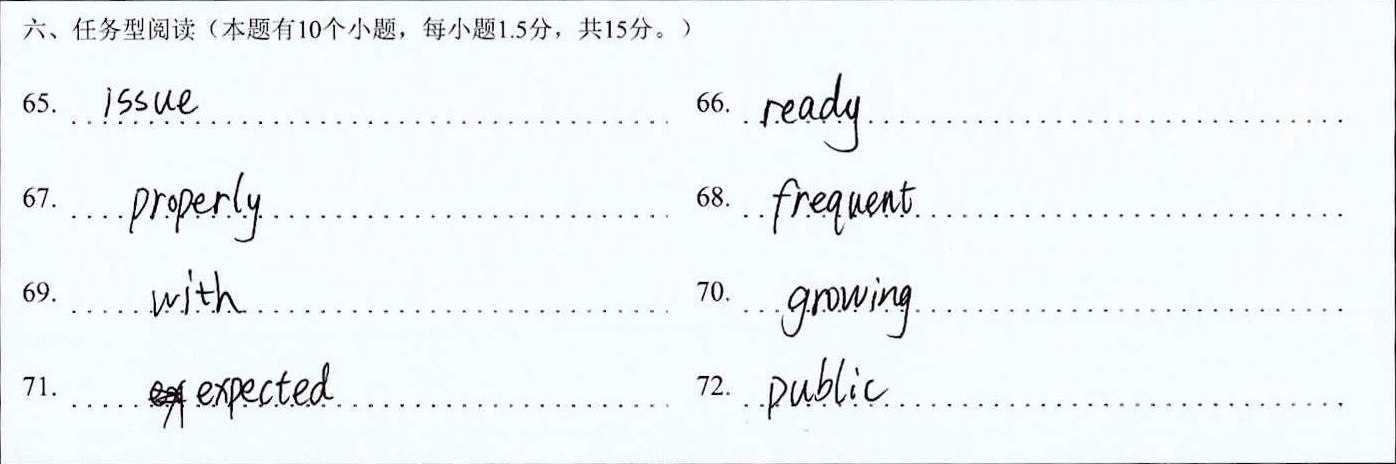 六、任务型阅读（本题有10个小题，每小题1.5分，共15分。）
65. issue 66. ready
67. properly 68. frequent
69. with 70. growing
71. expected 72. public